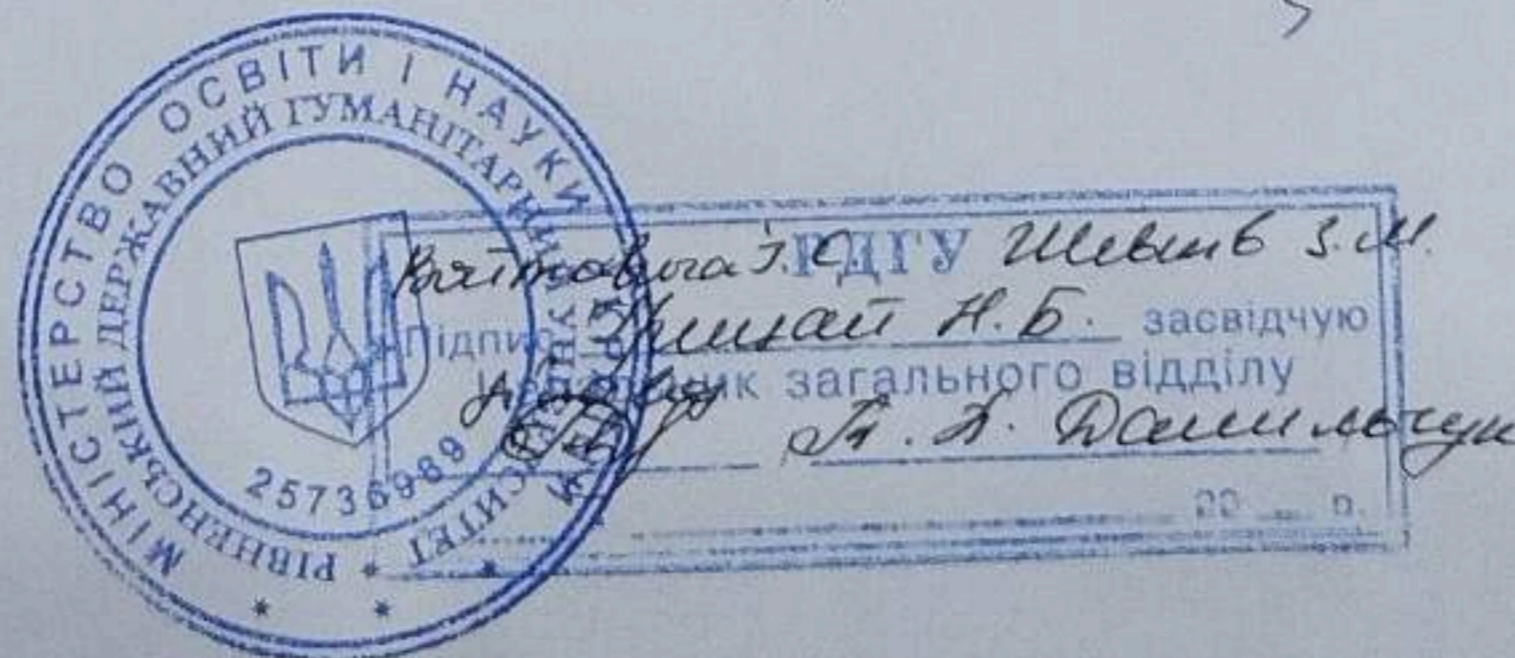 МІНІСТЕРСТВО ОСВІТИ І НАУКИ
РІВНЕНСЬКИЙ ДЕРЖАВНИЙ ГУМАНІТАРНИЙ УНІВЕРСИТЕТ
25736989
РДГУ Шевців З.М.
Підпис Н.Б. засвідчую
загального відділу
Данильчук
20 р.